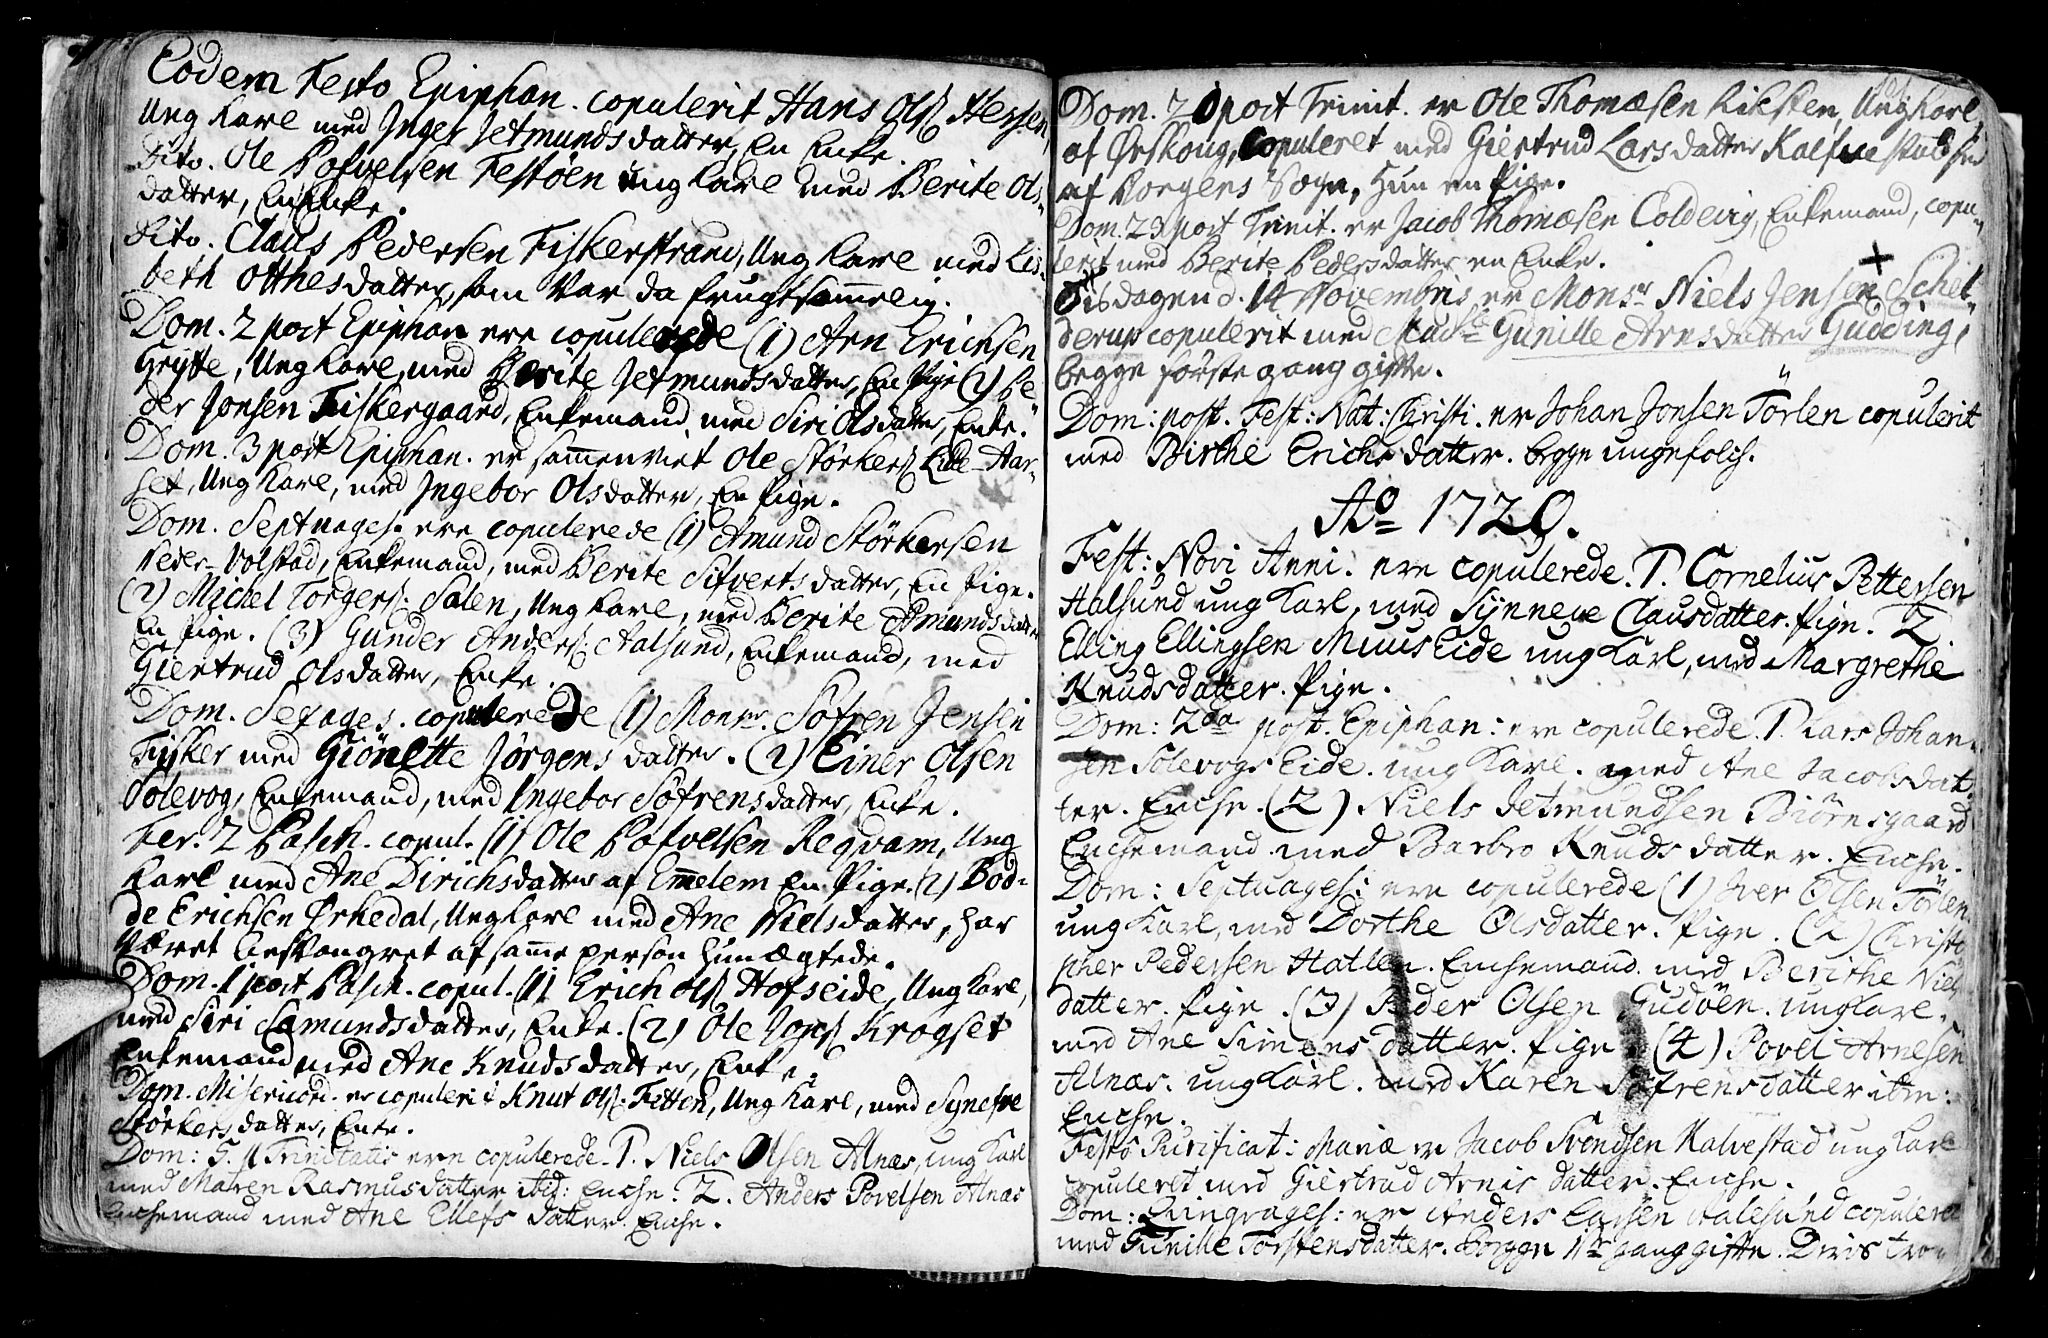 Eodem Festo Epiphan. copulerit Hans Olss Hessen,
Ung Karl med Inger Jetmundsdatter, En Enke.
Dito. Ole Pofvelsen Festöen ung Karl med Berite Ols-
datter, En Enke.
Dito. Claus Pedersen Fiskerstrand, Ung Karl med Lis-
beth Otthesdatter, som var da frugtsommelig.
Dom. 2 post Epiphan ere copulerede (1) Arn Erichsen
Grytte, Ung Karl, med Berite Jetmundsdatter, En Pige (2) Pe-
der Jonsen Fiskergaard, Enkemand, med Siri Olsdatter, Enke.
Dom. 3 post Epiphan. er sammenviet Ole Störkerss Lille-Aar-
set, Ung Karl, med Ingebor Olsdatter, En Pige.
Dom. Septuages. ere copulerede (1) Amund Störkersen
Neder-Volstad, Enkemand, med Berite Sifvertsdatter, En Pige.
(2) Michel Torgerss: Salen, Ung Karl, med Berite Amundsdatter
En Pige. (3) Gunder Anderss: Aalsund, Enkemand, med
Giertrud Olsdatter, Enke.
Dom. Sexages. copulerede (1) Monsr. Söfren Jensen
Fisker med Giönette Jörgensdatter. (2) Einer Olsen
Solevog, Enkemand, med Ingebor Söfrensdatter, Enke.
Fer. 2 Pasch. copul. (1) Ole Pofvelsen Reqvam, Ung
Karl med Ane Dirichsdatter af Emmelem En Pige. (2) Bod-
de Erichsen Ørkedal, Ung Karl med Ane Nielsdatter, har
været besvangret af samme person hun ægtede.
Dom. 1 post Pasch. copul. (1) Erich Olss Hofseide, Ung Karl,
med Siri Samundsdatter, Enke. (2) Ole Jonss Krogset
Enkemand med Ane Knudsdatter, Enke.
Dom. Misericord. er copulerit Knut Olss: Fetten, Ung Karl, med Synefve
Störkersdatter, Enke.
Dom: 5. p Trinitatis ere copulerede. 1. Niels Olsen Alnæs, ung Karl
med Maren Rasmusdatter ibid: Enche. 2. Anders Povelsen Alnæs
Enchemand med Ane Ellefsdatter. Enche.
Dom. 20 post Trinit. er Ole Thomæsen Riksten, Ung Karl,
af Ørskoug, copuleret med Giertrud Larsdatter
af Borgens Sogn, hun en Pige.
Dom. 23 post Trinit. er Jacob Thomæsen Coldevig, Enkemand, copu-
lerit med Berite Pedersdatter en Enke.
Tisdagen d. 14 Novembris er Monsr Niels Jensen Schel-
derup copulerit med Gunille Arnsdatter Gudding,
begge förste gang gifte.
Dom: post. Fest: Nat: Christi. er Johan Jonsen Törlen copulerit
med Birthe Erichsdatter. begge ungefolch.
Ao 1720.
Fest: Novi Anni. ere copulerede. 1. Cornelius Pettersen
Aalsund ung Karl, med Synneve Clausdatter. Pige. 2
Elling Ellingsen Muus Eide ung Karl, med Margrethe
Knudsdatter. Pige.
Dom: 2da post. Epiphan: ere copulerede. 1. Lars Johan-
sen Solevogs Eide. ung Karl. med Ane Jacobsdat-
ter. Enche. (2) Niels Jetmundsen Biörnsgaard
Enchemand med Barbro Knudsdatter. Enche.
Dom: Septuages: ere copulerede (1) Iver Olsen Törlen
ung Karl, med Dorthe Olsdatter. Pige. (2) Christo-
pher Pedersen Hatlen. Enchemand. med Berithe Niels
datter. Pige. (3) Peder Olsen Gudöen. ung Karl.
med Ane Simensdatter. Pige. (4) Povel Arnesen
Alnæs. ung Karl. med Karen Söfrensdatter ibm:
Enche.
Festo Purificat: Mariæ er Jacob Svendsen Kalvestad ung Karl
copuleret med Giertrud Arnisdatter. Enche.
Dom: Qvinqvages: er Anders Larsen Aalesund copuleret
med Gunille Torstensdatter. Begge 1ste gang gifte.